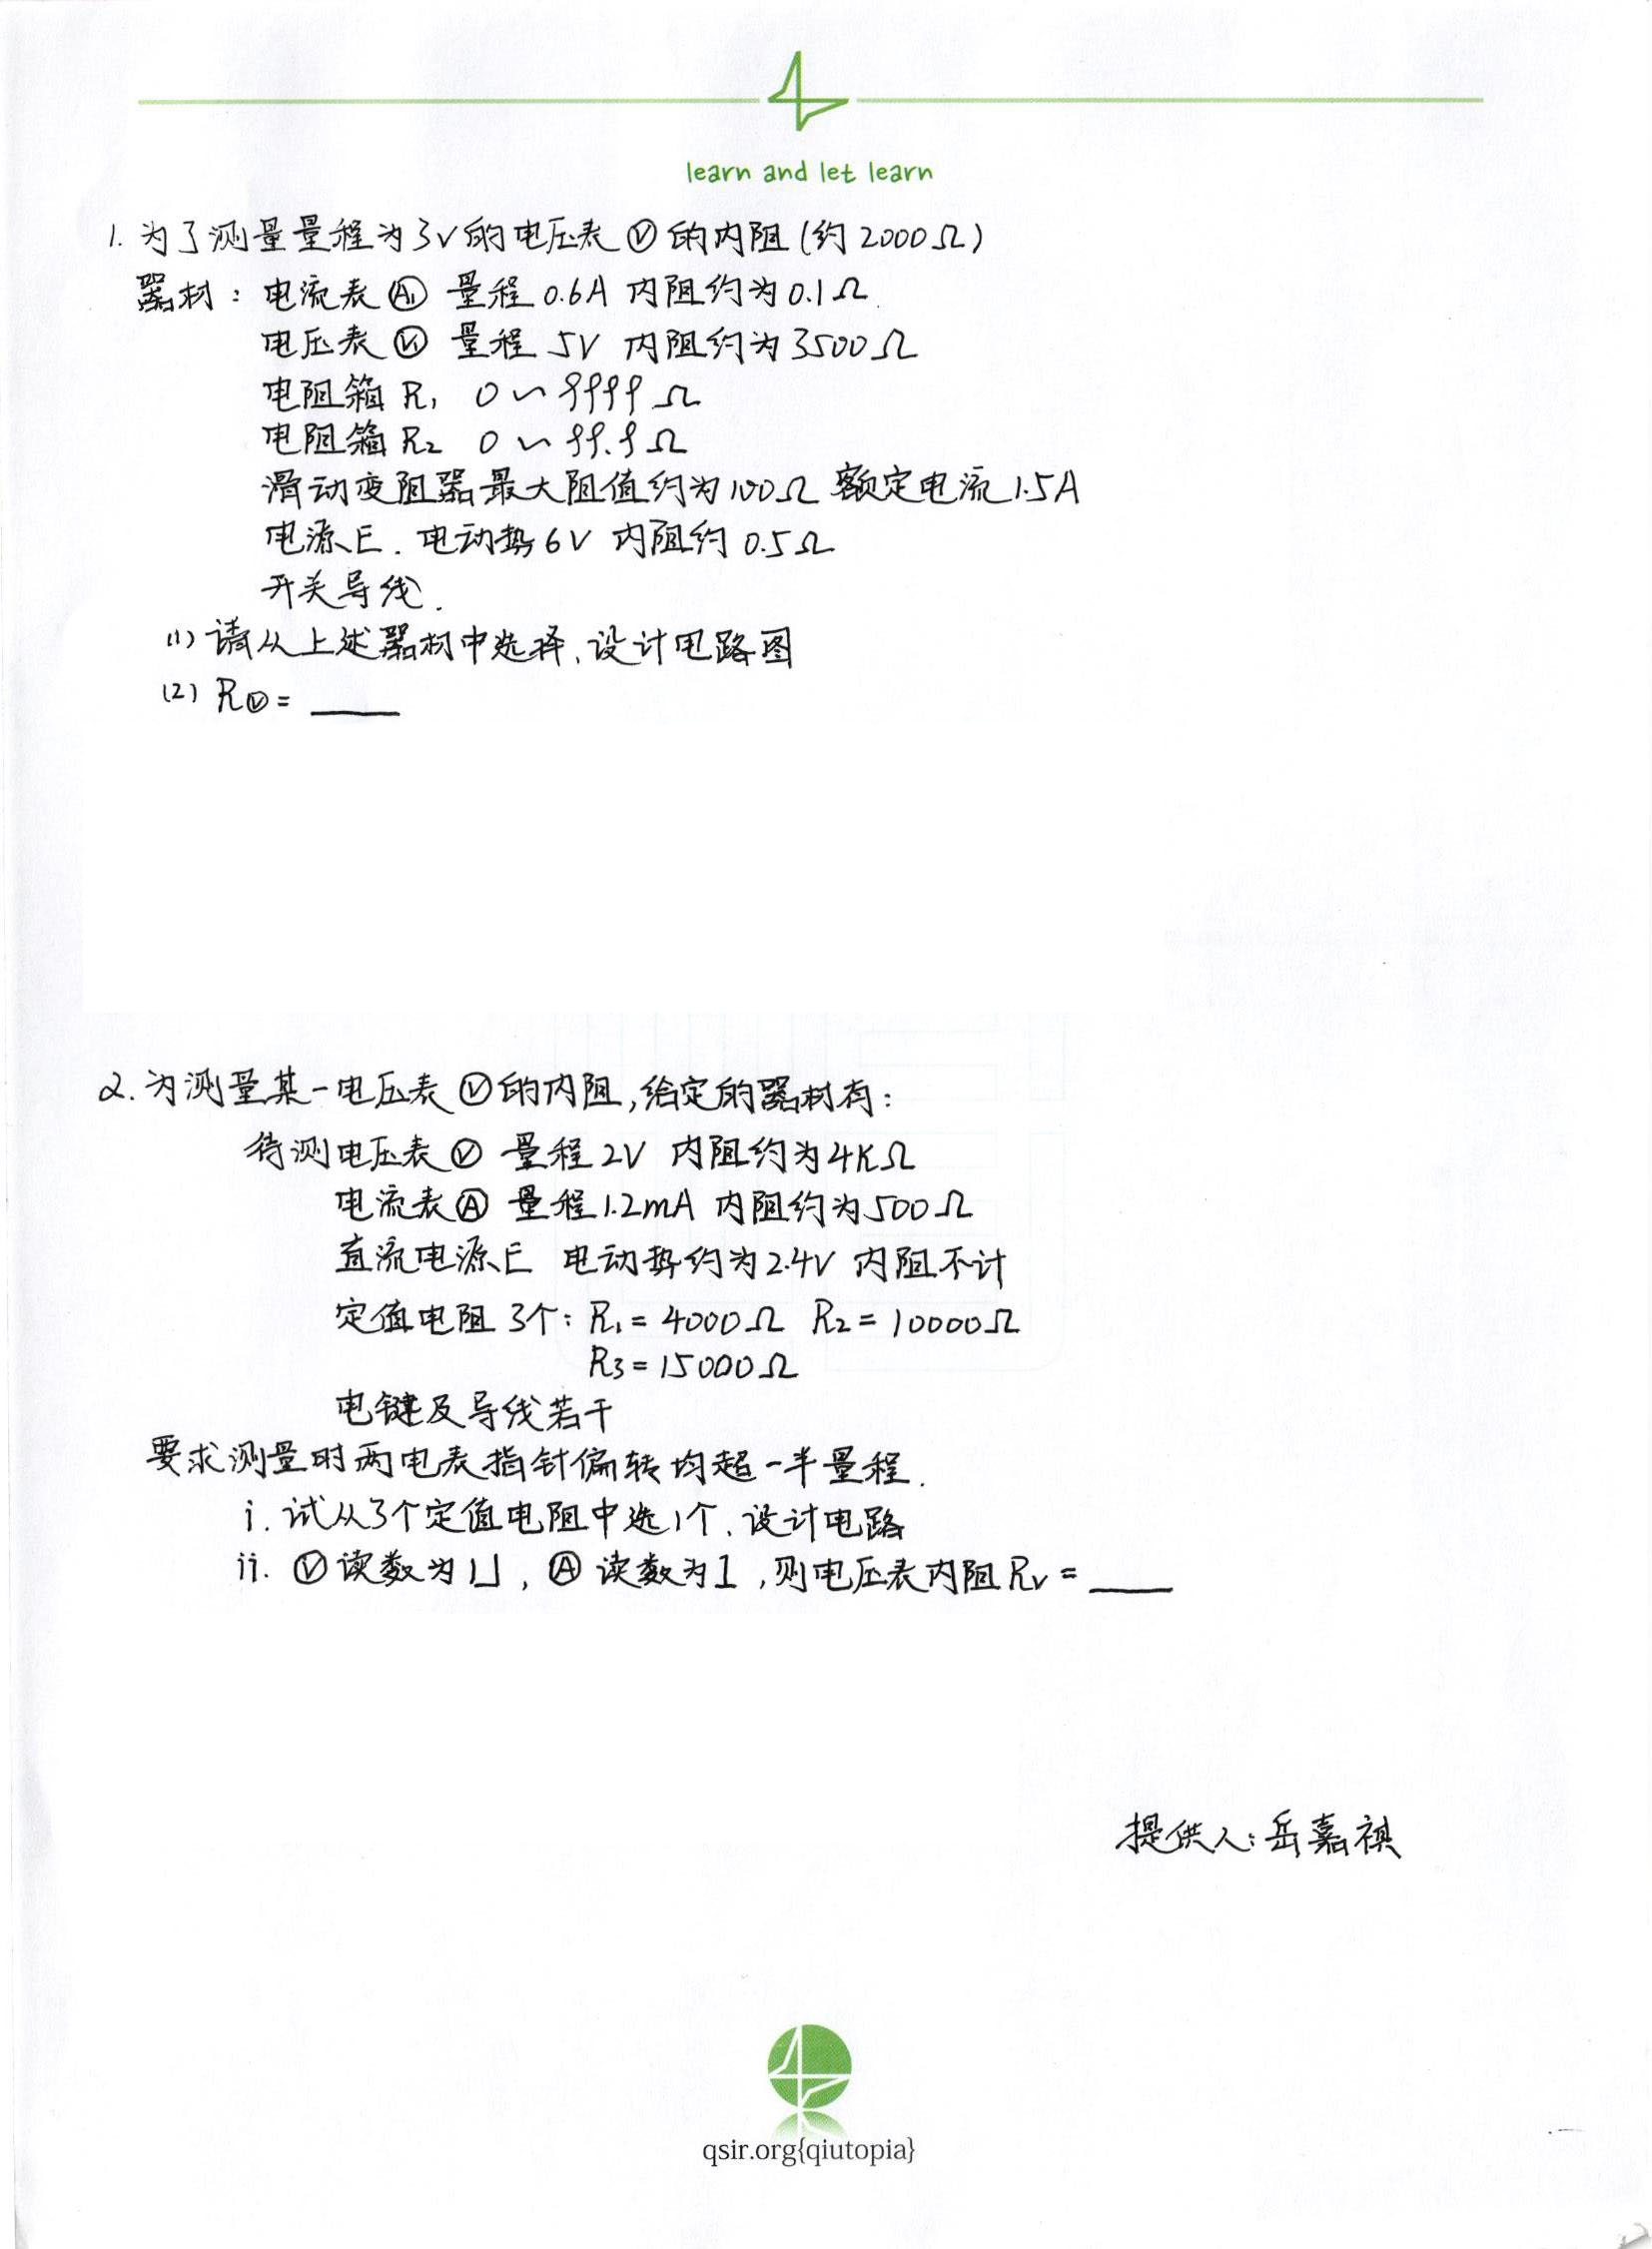 learn and let learn
1. 为了测量量程为3V的电压表Ⓥ的内阻(约2000Ω)
器材: 电流表A₁ 量程0.6A 内阻约为0.1Ω.
电压表V₁ 量程 5V 内阻约为3500Ω
电阻箱 R₁ 0~9999Ω
电阻箱 R₂ 0~99.9Ω
滑动变阻器最大阻值约为100Ω 额定电流1.5A
电源E. 电动势6V 内阻约0.5Ω
开关导线.
(1) 请从上述器材中选择、设计电路图
(2) RⓋ= ____
2. 为测量某一电压表Ⓥ的内阻,给定的器材有:
待测电压表Ⓥ 量程2V 内阻约为4KΩ
电流表Ⓐ 量程1.2mA 内阻约为500Ω
直流电源E 电动势约为2.4V 内阻不计
定值电阻3个: R₁=4000Ω R₂=10000Ω
R₃=15000Ω
电键及导线若干
要求测量时两电表指针偏转均超一半量程.
i. 试从3个定值电阻中选1个、设计电路
ii. Ⓥ读数为U, Ⓐ读数为I,则电压表内阻Rv=____
提供人:岳嘉祺
qsir.org{qiutopia}